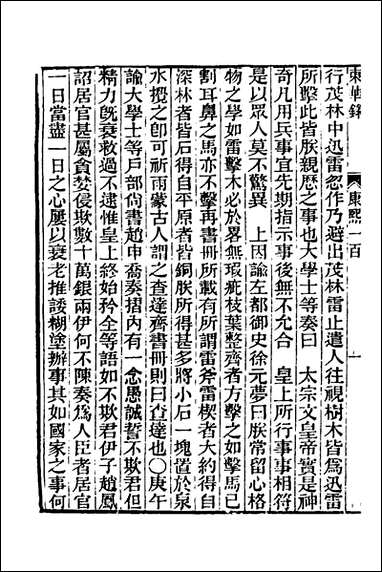 東華錄
康熙一百
一
行茂林中迅雷忽作乃避出茂林雷止遣人往視樹木皆爲迅雷
所擊此皆朕親歷之事也大學士等奏曰　太宗文皇帝實是神
奇凡用兵事宜先期指示事後無不允合　皇上所行事事相符
是以眾人莫不驚異　上因諭左都御史徐元夢曰朕常留心格
物之學如雷擊木必於畧無瑕疵枝葉整齊者方擊之如擊馬已
割耳鼻之馬亦不擊再書冊所載有所謂雷斧雷楔者大約得自
深林者皆石得自平原者皆銅朕所得甚多將小石一塊置於泉
水攪之卽可祈雨蒙古人謂之查達齊書冊則曰查達也〇庚午
諭大學士等戶部尙書趙申喬奏摺內有一念愚誠誓不欺君但
精力旣衰救過不遑惟皇上終始矜全等語如不欺君伊子趙鳳
詔居官甚屬貪婪侵欺數十萬銀兩伊何不陳奏爲人臣者居官
一日當盡一日之心屢以衰老推諉糊塗辦事其如國家之事何